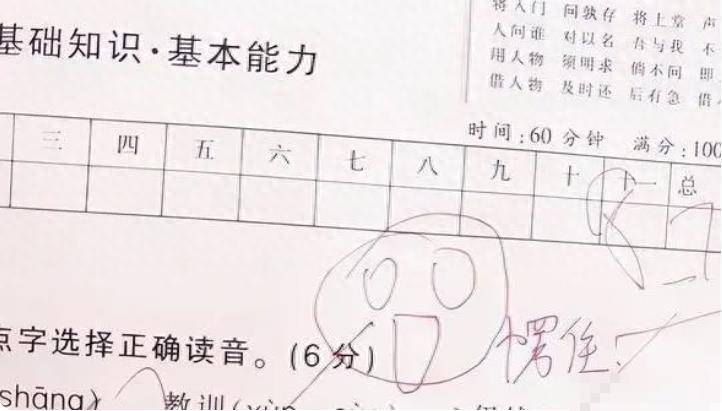 将人门 问孰存 将上堂 声
人问谁 对以名 吾与我 不
用人物 须明求 倘不问 即
借人物 及时还 后有急 借
基础知识·基本能力
时间:60分钟 满分:100
三 四 五 六 七 八 九 十 十一 总
8
愣住
点字选择正确读音。(6分)
shāng) 教训(xùn